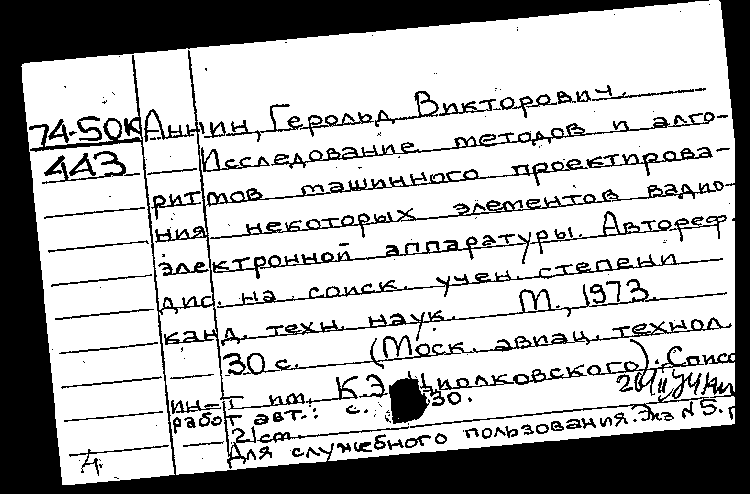 74-50К Аннин, Герольд Викторович.
443 Исследование методов и алго-
ритмов машинного проектирова-
ния некоторых элементов радио-
электронной аппаратуры. Автореф.
дис. на соиск. учен. степени
канд. техн. наук. М., 1973.
30 с. (Моск. авиац. технол
ин-т им. К.Э. Циолковского). Списо
работ авт.: с. 30.
21 ст.
Для служебного пользования. Экз N 5.
4